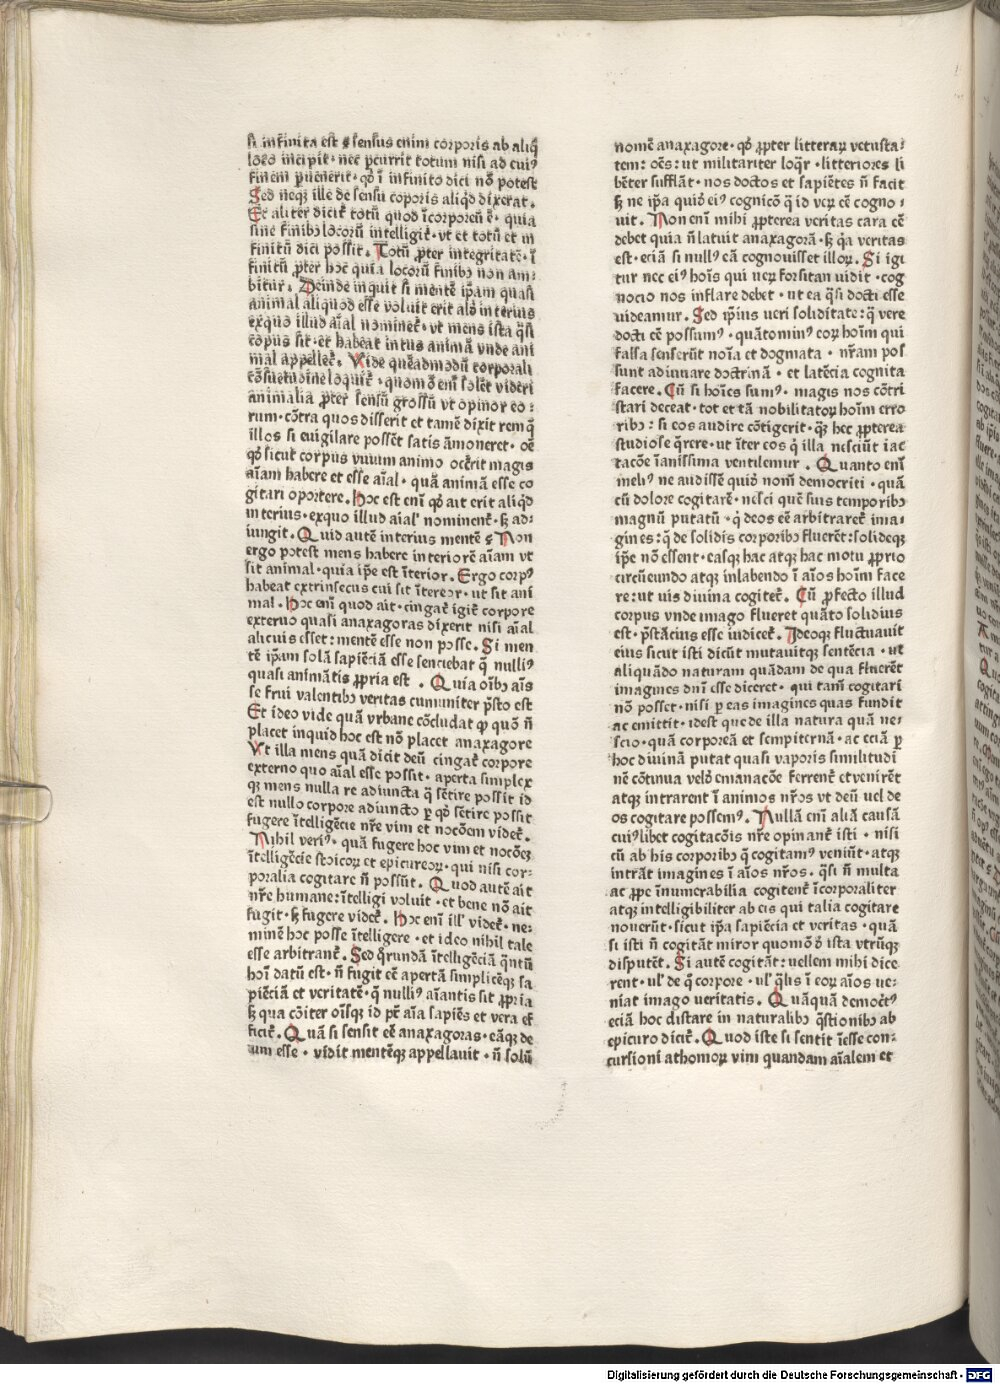 si infinita est ꝯ sensus enim corporis ab aliq̄
loco incipit · nec ꝑcurrit totum nisi ad cuiꝰ
finem ꝑuenerit · qď ī infinito dici nō potest
Sed neqꝫ ille de sensu coporis aliqď dixerat .
Et aliter dicit̄ totū quod īcorporeū ē · quia
sine finibꝫ locorū intelligit̄ · vt et totū et in
finitū dici possit . Totū ꝓpter integritatē · ī
finitū ꝓpter hoc quia locorū finibꝫ non am⸗
bitur . Deinde inquit si mentē ip̄am quasi
animal aliquod esse voluit erit aliď interius
exquo illud aīal nominet̄ · vt mens ista q̄si
copus sit · et habeat intus animā vnde ani
mal appellet̄ . Vide queādmodū corporali
cōsuetudine loquit̄ · quomō em̄ solēt videri
animalia ꝓpter sensū grossū vt opinor eo⸗
rum · cōtra quos disserit et tamē dixit rem q̄
illos si euigilare possēt satis āmoneret · oē
qď sicut corpus viuum animo occ̄rit magis
aīam habere et esse aīal · quā animā esse co
gitari oportere . Hoc est enī qď ait erit aliqď
interius · exquo illud aīal nominent̄ · ꝫ ad⸗
iungit . Quid autē interius mentē ꝯ Non
ergo potest mens habere interiorē aīam vt
sit animal · quia ip̄e est īterior . Ergo corpꝰ
habeat extrinsecus cui sit īterior · ut sit ani
mal . Hoc em̄ quod ait · cingat̄ igit̄ corpore
externo quasi anaxagoras dixerit nisi aīal
alicuis esset : mentē esse non posse . Si men
tē ip̄am solā sapiēciā esse senciebat q̄ nulliꝰ
quasi animātis ꝓpria est . Quia oībꝫ aīs
se frui valentibꝫ veritas cūmuniter p̄sto est
Et ideo vide quā vrbane cōcludat ꝙ quō n̄
placet inquid hoc est nō placet anaxagore
Vt illa mens quā dicit deū cingat̄ corpore
externo quo aīal esse possit · aperta simplex
qꝫ mens nulla re adiuncta q̄ sētire possit id
est nullo corpore adiuncto ꝑ qď sētire possit
fugere ītelligēcie nr̄e vim et nocōem videt̄ .
Nihil veriꝰ · quā fugere hoc vim et nocōeꝫ
ītelligēcie stoicoꝝ et epicureoꝝ · qui nisi cor⸗
poralia cogitare n̄ possūt . Quod autē ait
nr̄e humane : ītelligi voluit · et bene nō ait
fugit · ꝫ fugere videt̄ . Hoc enī ill' videt̄ · ne⸗
minē hoc posse ītelligere · et ideo nihil tale
esse arbitrant̄ . Sed q̄rundā ītelligēciā q̄ntū
hoī datū est · n̄ fugit cē apertā simplicēqꝫ sa
piēciā et veritatē · q̄ nulliꝰ aīantis sit ꝓpria
ꝫ qua cōiter oīsqꝫ id pꝛ̄ aīa sapiēs et vera ef
ficit̄ . Quā si sensit eē anaxagoras · eāqꝫ de
um esse · vidit mentēqꝫ appellauit · n̄ solū
nomē anaxagore · qď ꝓpter litteraꝝ vetusta⸗
tem : oēs : ut militariter loq̄r · litteriores li
bēter sufflāt · nos doctos et sapiētes n̄ facit
ꝫ ne ip̄a quid̄ eiꝰ cognicō q̄ id veꝝ eē cogno⸗
uit . Non enī mihi ꝓpterea veritas cara eē
debet quia n̄ latuit anaxagorā · ꝫ q̄a veritas
est · eciā si nullꝰ eā cognouisset illoꝝ . Si igi
tur nec eiꝰ hoīs qui ueꝝ forsitan uidit · cog
nocio nos inflare debet · ut ea q̄si docti esse
uideamur . Sed ip̄ius ueri soliditate : q̄ vere
docti eē possumꝰ · quātominꝰ eoꝝ hoīm qui
falsa senserūt noīa et dogmata · nr̄am pos
sunt adiuuare doctrinā · et latēcia cognita
facere . Cū si hoīes sumꝰ · magis nos cōtri
stari deceat · tot et tā nobilitatoꝝ hoīm erro
ribꝫ : si eos audire cōtigerit · q̄ꝫ hec ꝓpterea
studiose q̄rere · ut īter eos q̄ illa nesciūt iac
tacōe īanissima ventilemur . Quanto enī
meliꝰ ne audissē quid̄ nom̄ democriti · quā
cū dolore cogitarē · nesci quē suis temporibꝫ
magnū putatū · q̇ deos eē arbitraret̄ ima⸗
gines : q̄ de solidis corporibꝫ fluerēt : solideqꝫ
ip̄e nō essent · easqꝫ hac atqꝫ hac motu ꝓprio
circūeundo atqꝫ inlabendo ī aīos hoīm face
re : ut uis diuina cogitet̄ . Cū ꝓfecto illud
corpus vnde imago flueret quāto solidius
est · p̄stācius esse iudicet̄ . Ideoqꝫ fluctuauit
eius sicut isti dicūt mutauitqꝫ sentēcia · ut
aliquādo naturam quādam de qua fluerēt
imagines dn̄m esse diceret · qui tam̄ cogitari
nō posset · nisi ꝑ eas imagines quas fundit
ac emittit · idest que de illa natura quā ne⸗
scio · quā corporeā et sempiternā · ac eciā ꝑ
hoc diuinā putat quasi vaporis similitudi
nē cōtinua velď emanacōe ferrent̄ et venirēt
atqꝫ intrarent ī animos nr̄os vt deū uel de
os cogitare possemꝰ . Nullā enī aliā causā
cuiꝰlibet cogitacōis nr̄e opinant̄ isti · nisi
cū ab his corporibꝫ q̄ cogitamꝰ veniūt · atqꝫ
intrāt imagines ī aīos nr̄os . q̄si n̄ multa
ac ꝓpe īnumerabilia cogitent̄ īcorporaliter
atqꝫ intelligibiliter ab eis qui talia cogitare
nouerūt · sicut ip̄a sapiēcia et veritas · quā
si isti n̄ cogitāt miror quomōď ista vtrūqꝫ
disputēt . Si autē cogitāt : uellem mihi dice
rent · ul' de q̄ corpore · ul' q̄lis ī eoꝝ aīos ue⸗
niat imago ueritatis . Quāquā democ̄tꝰ
eciā hoc distare in naturalibꝫ q̄stionibꝫ ab
epicuro dicit̄ . Quod iste si sentit īesse con⸗
cursioni athomoꝝ vim quandam aīalem et
Digitalisierung gefördert durch die Deutsche Forschungsgemeinschaft - DFG